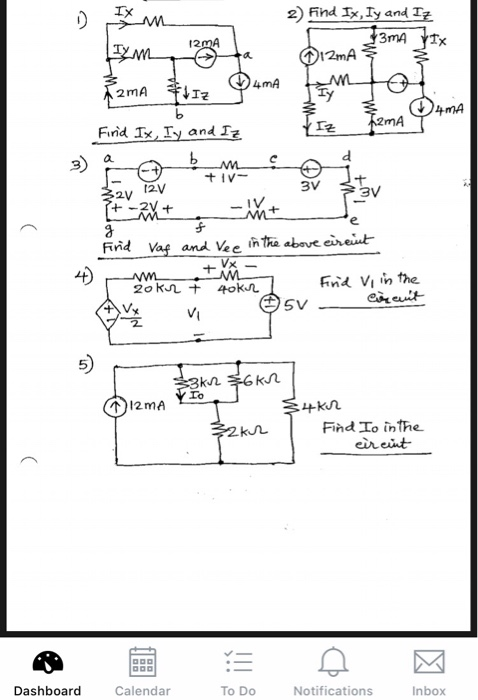 1)
Ix
Iy
12mA
a
4mA
2mA
Iz
b
Find Ix, Iy and Iz
2) Find Ix, Iy and Iz
3mA
Ix
12mA
Iy
4mA
Iz
2mA
3)
a
b
c
d
- + + -
+ 1V -
2V
12V
3V
+
3V
-
+ -2V +
- 1V +
g
f
e
Find Vaf and Vec in the above circuit
4)
+ Vx -
20kΩ + 40kΩ
Vx/2
V1
5V
-
Find V1 in the
circuit
5)
3kΩ 6kΩ
Io
12mA
4kΩ
2kΩ
Find Io in the
circuit
Dashboard
Calendar
To Do
Notifications
Inbox